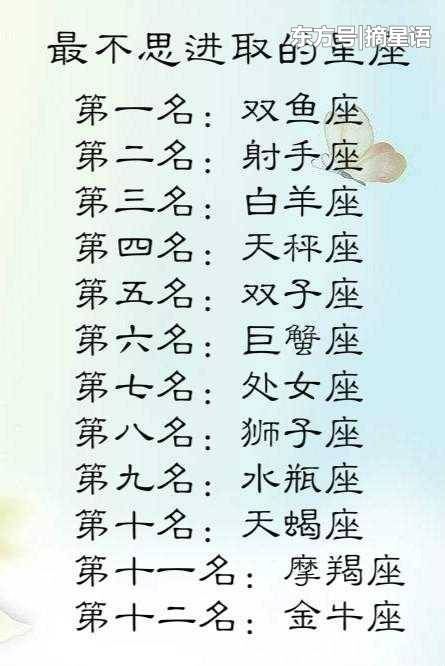 东方号|摘星语
最不思进取的星座
第一名：双鱼座
第二名：射手座
第三名：白羊座
第四名：天秤座
第五名：双子座
第六名：巨蟹座
第七名：处女座
第八名：狮子座
第九名：水瓶座
第十名：天蝎座
第十一名：摩羯座
第十二名：金牛座